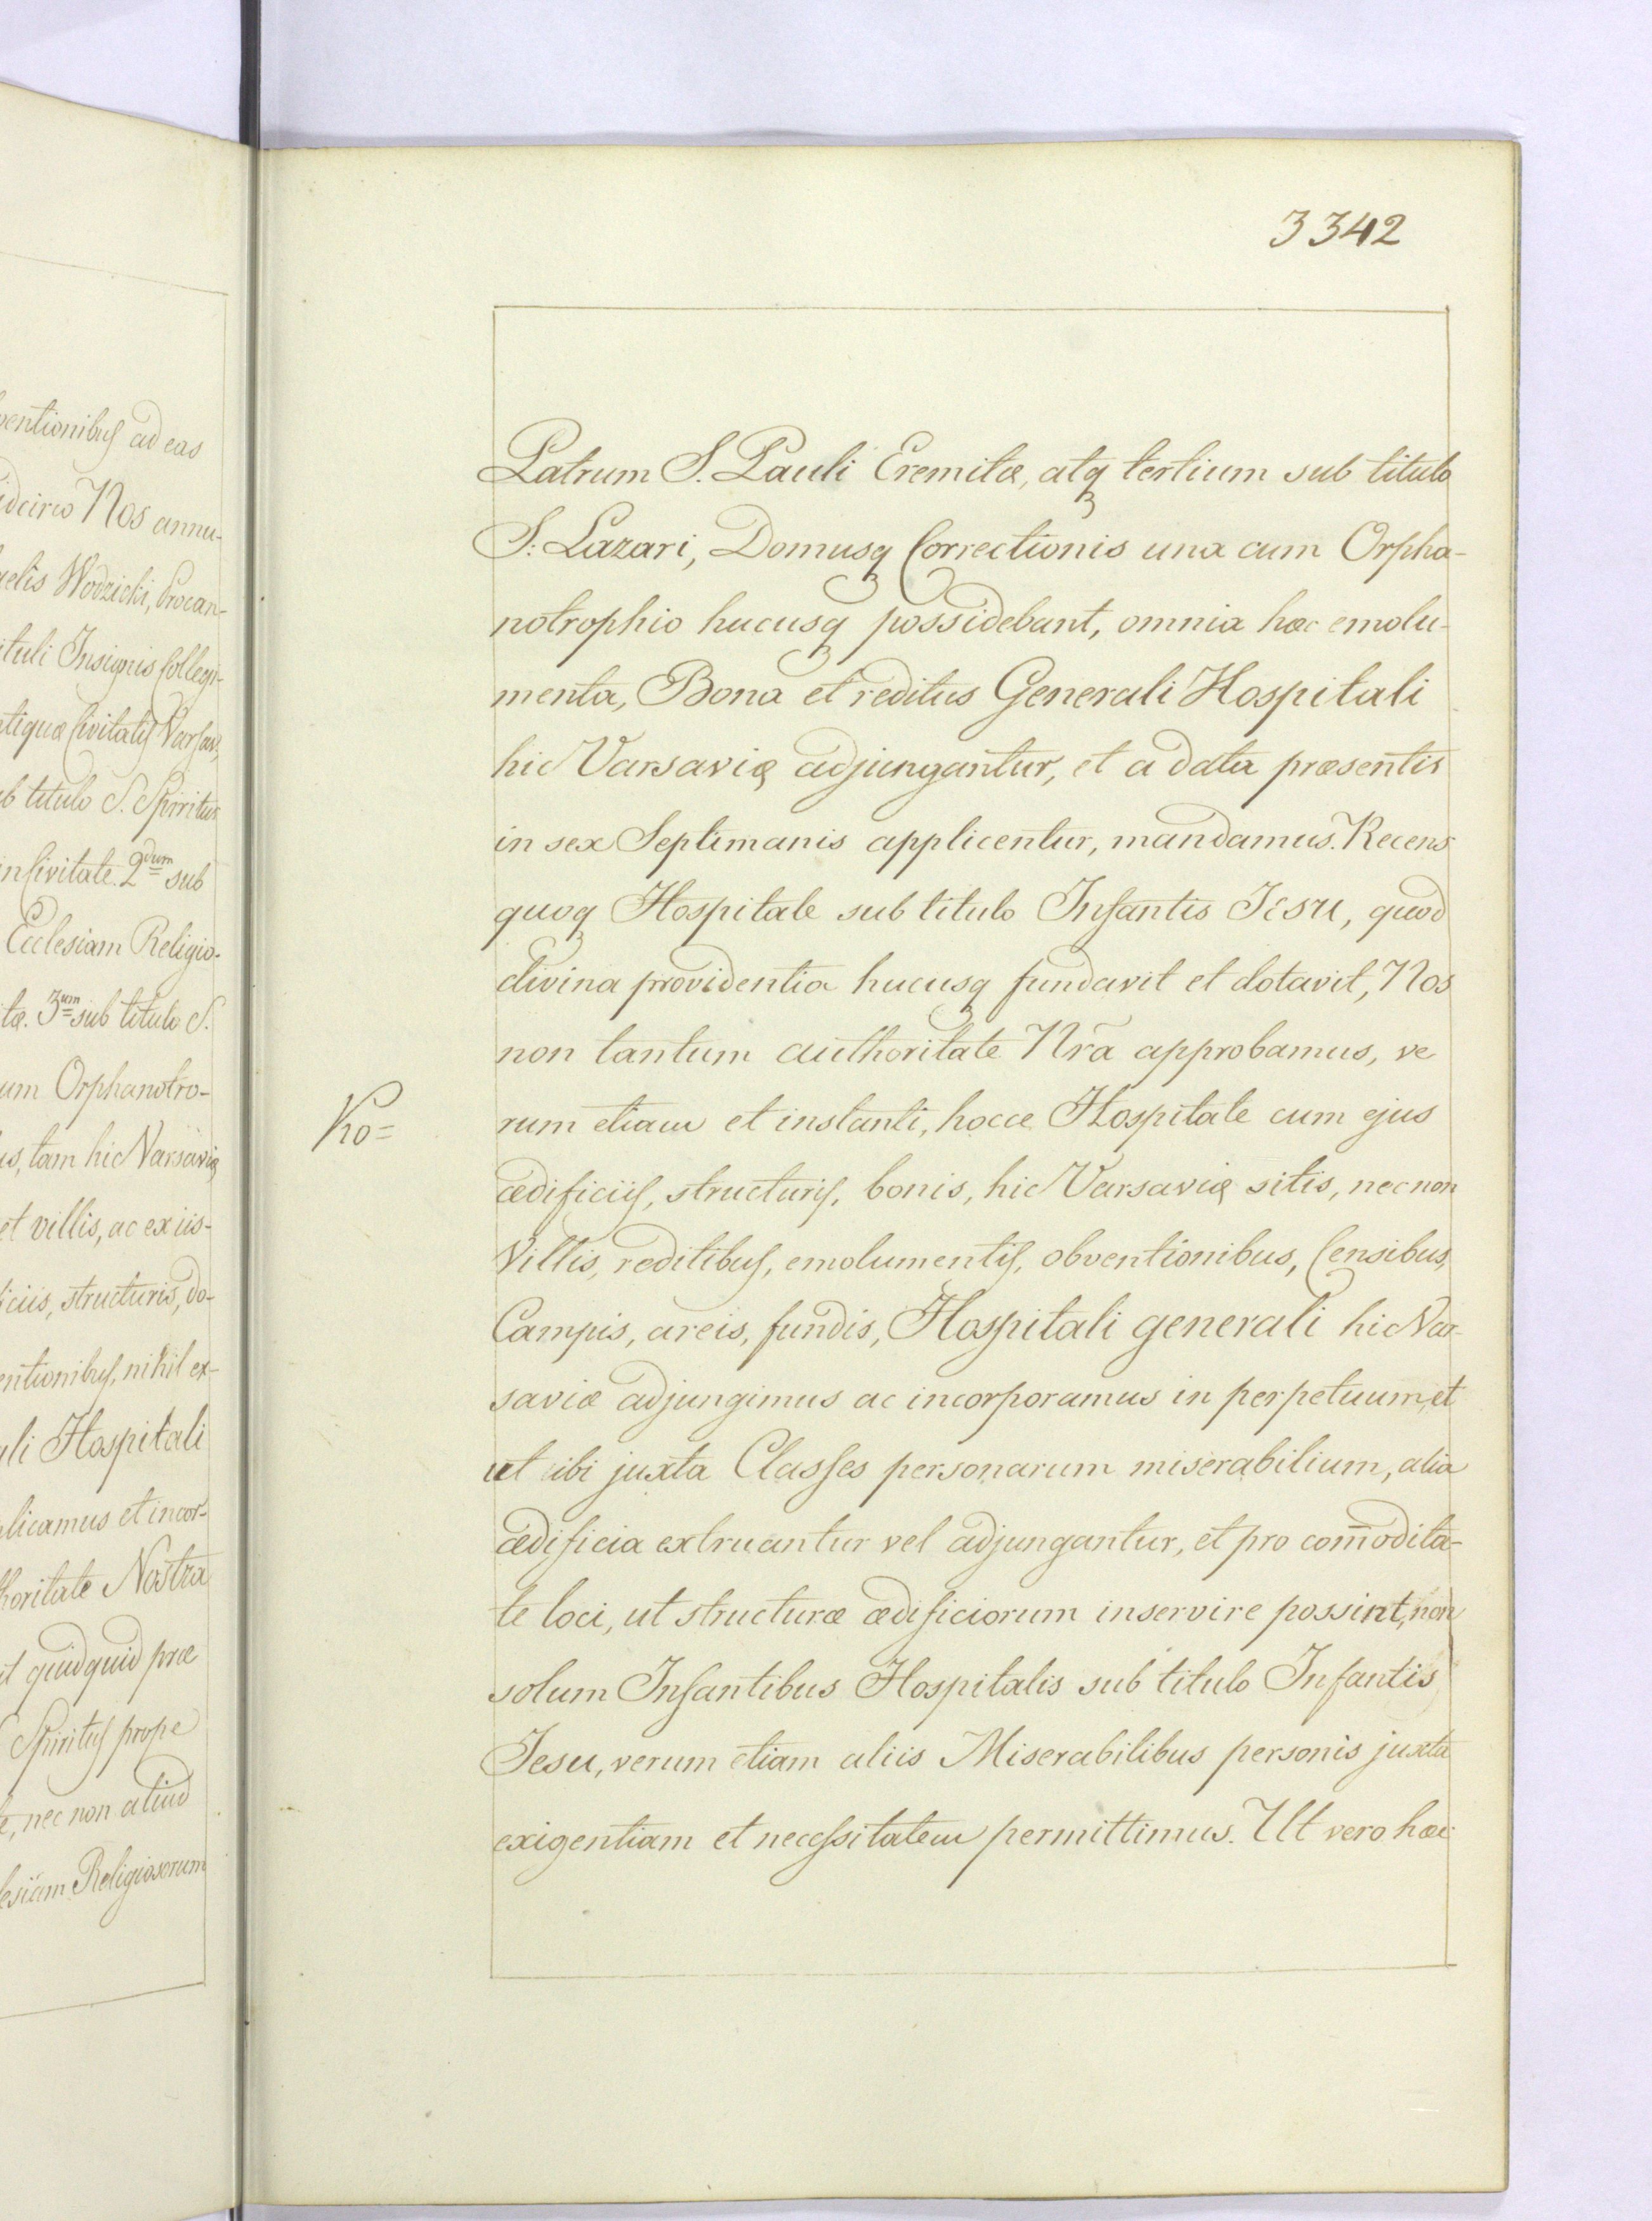 ventionibus ad eas
idcirco Nos annu-
elis Wodzicki, Procan-
ituli Insignis Collegi-
tiquæ Civitatis Varsav,
b titulo S. Spiritus
in Civitate. 2dum sub
Ecclesiam Religio-
tæ. 3um sub titulo S.
um Orphanotro-
us, tam hic Varsaviæ
et villis, ac ex iis-
iciis, structuris, do-
entionibus, nihil ex-
ali Hospitali
licamus et incor-
horitate Nostra
t quidquid præ
Spiritus prope
e, nec non aliud
lesiam Religiosorum
3342
Patrum S. Pauli Eremitæ, atq tertium sub titulo
S: Lazari, Domusq Correctionis una cum Orpha-
notrophio hucusq possidebant, omnia hæc emolu-
menta, Bona et reditus Generali Hospitali
hic Varsavię adjungantur, et a data præsentis
in sex Septimanis applicentur, mandamus. Recens
quoq Hospitale sub titulo Infantis Jesu, quod
divina providentia hucusq fundavit et dotavit, Nos
non tantum authoritate Nrã approbamus, ve
rum etiam et instanti, hocce Hospitale cum ejus
ædificiis, structuris, bonis, hic Varsavię sitis, nec non
Villis, reditibus, emolumentis, obventionibus, Censibus,
Campis, areis, fundis, Hospitali generali hic Var-
saviæ adjungimus ac incorporamus in perpetuum, et
ut ibi juxta Classes personarum miserabilium, alia
ædificia extruantur vel adjungantur, et pro com̄odita-
te loci, ut structuræ ædificiorum inservire possint, non
solum Infantibus Hospitalis sub titulo Infantis
Jesu, verum etiam aliis Miserabilibus personis juxta
exigentiam et necessitatem permittimus. Ut vero hæc